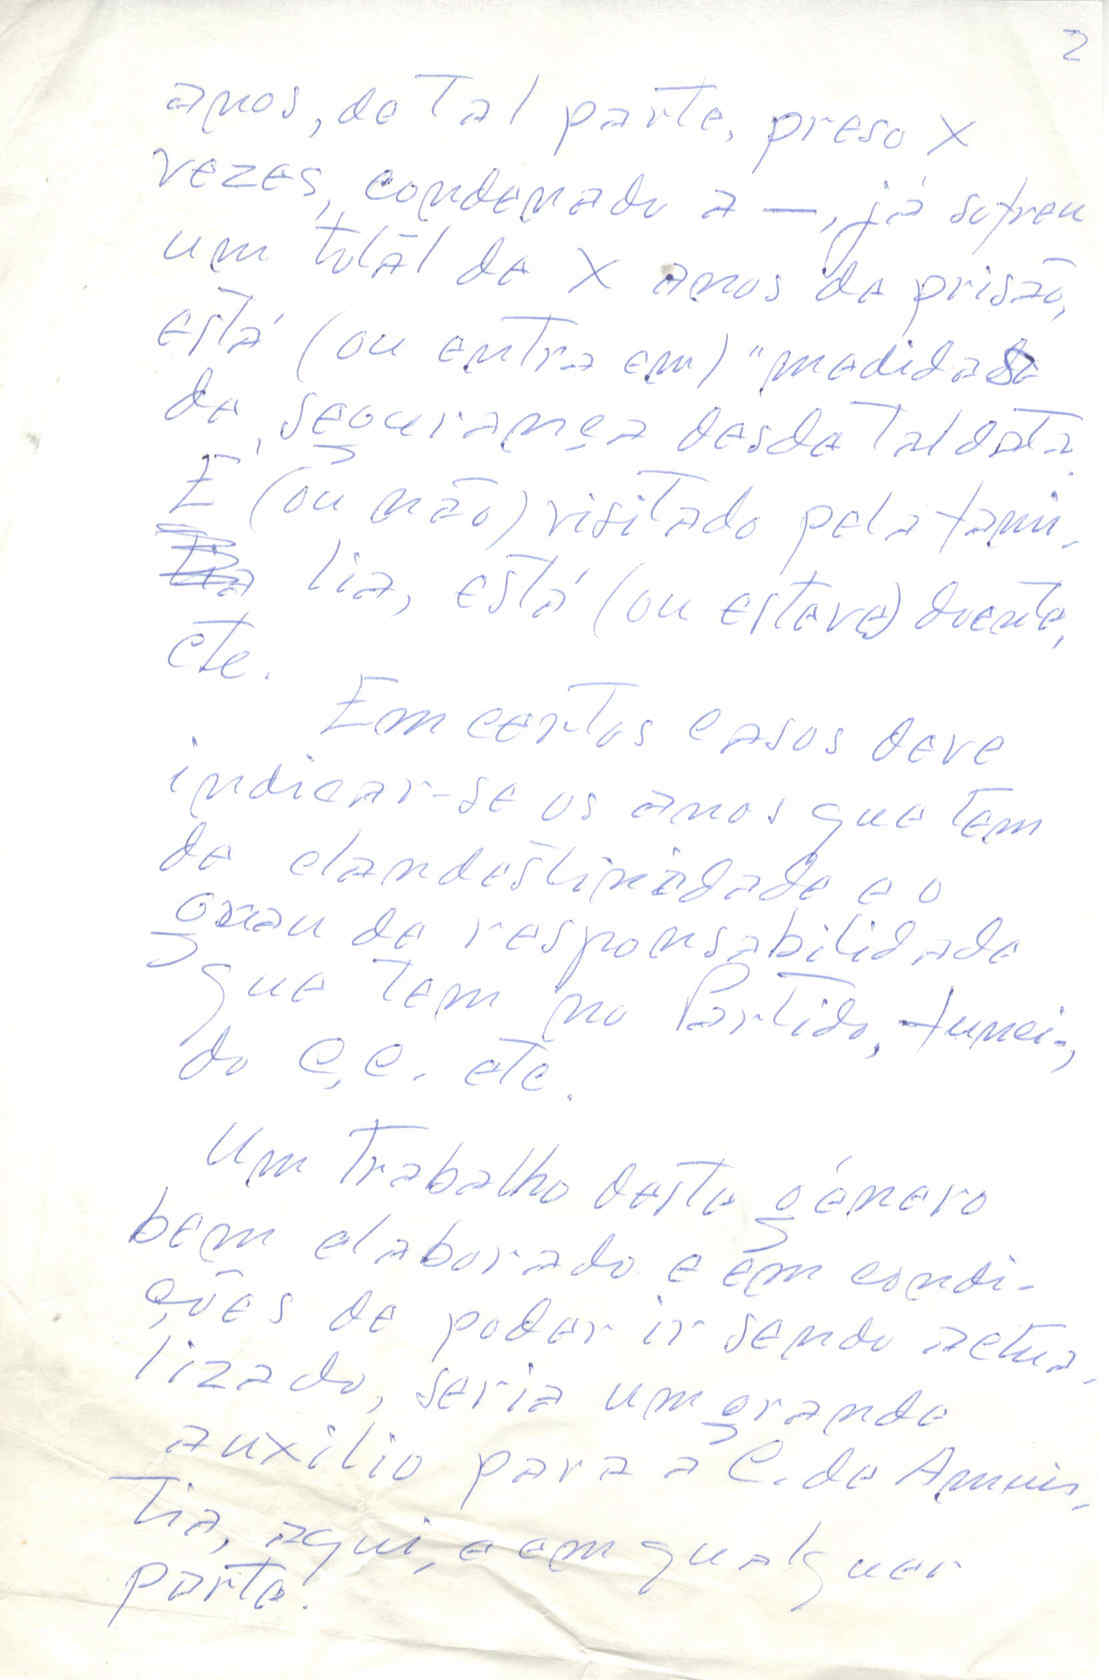 2
anos, de tal parte, preso X
vezes, condenado a —, já sofreu
um total de X anos de prisão,
está (ou entra em) "medidas
de segurança desde tal data.
É (ou não) visitado pela famí-
lia, está (ou esteve) doente,
etc.
Em certos casos deve
indicar-se os anos que tem
de clandestinidade e o
grau de responsabilidade
que tem no Partido, funci-,
do C.C. etc.
Um trabalho deste género
bem elaborado e em condi-
ções de poder ir sendo actua-
lizado, seria um grande
auxílio para a C. de Amnis-
tia, aqui, e em qualquer
parte!